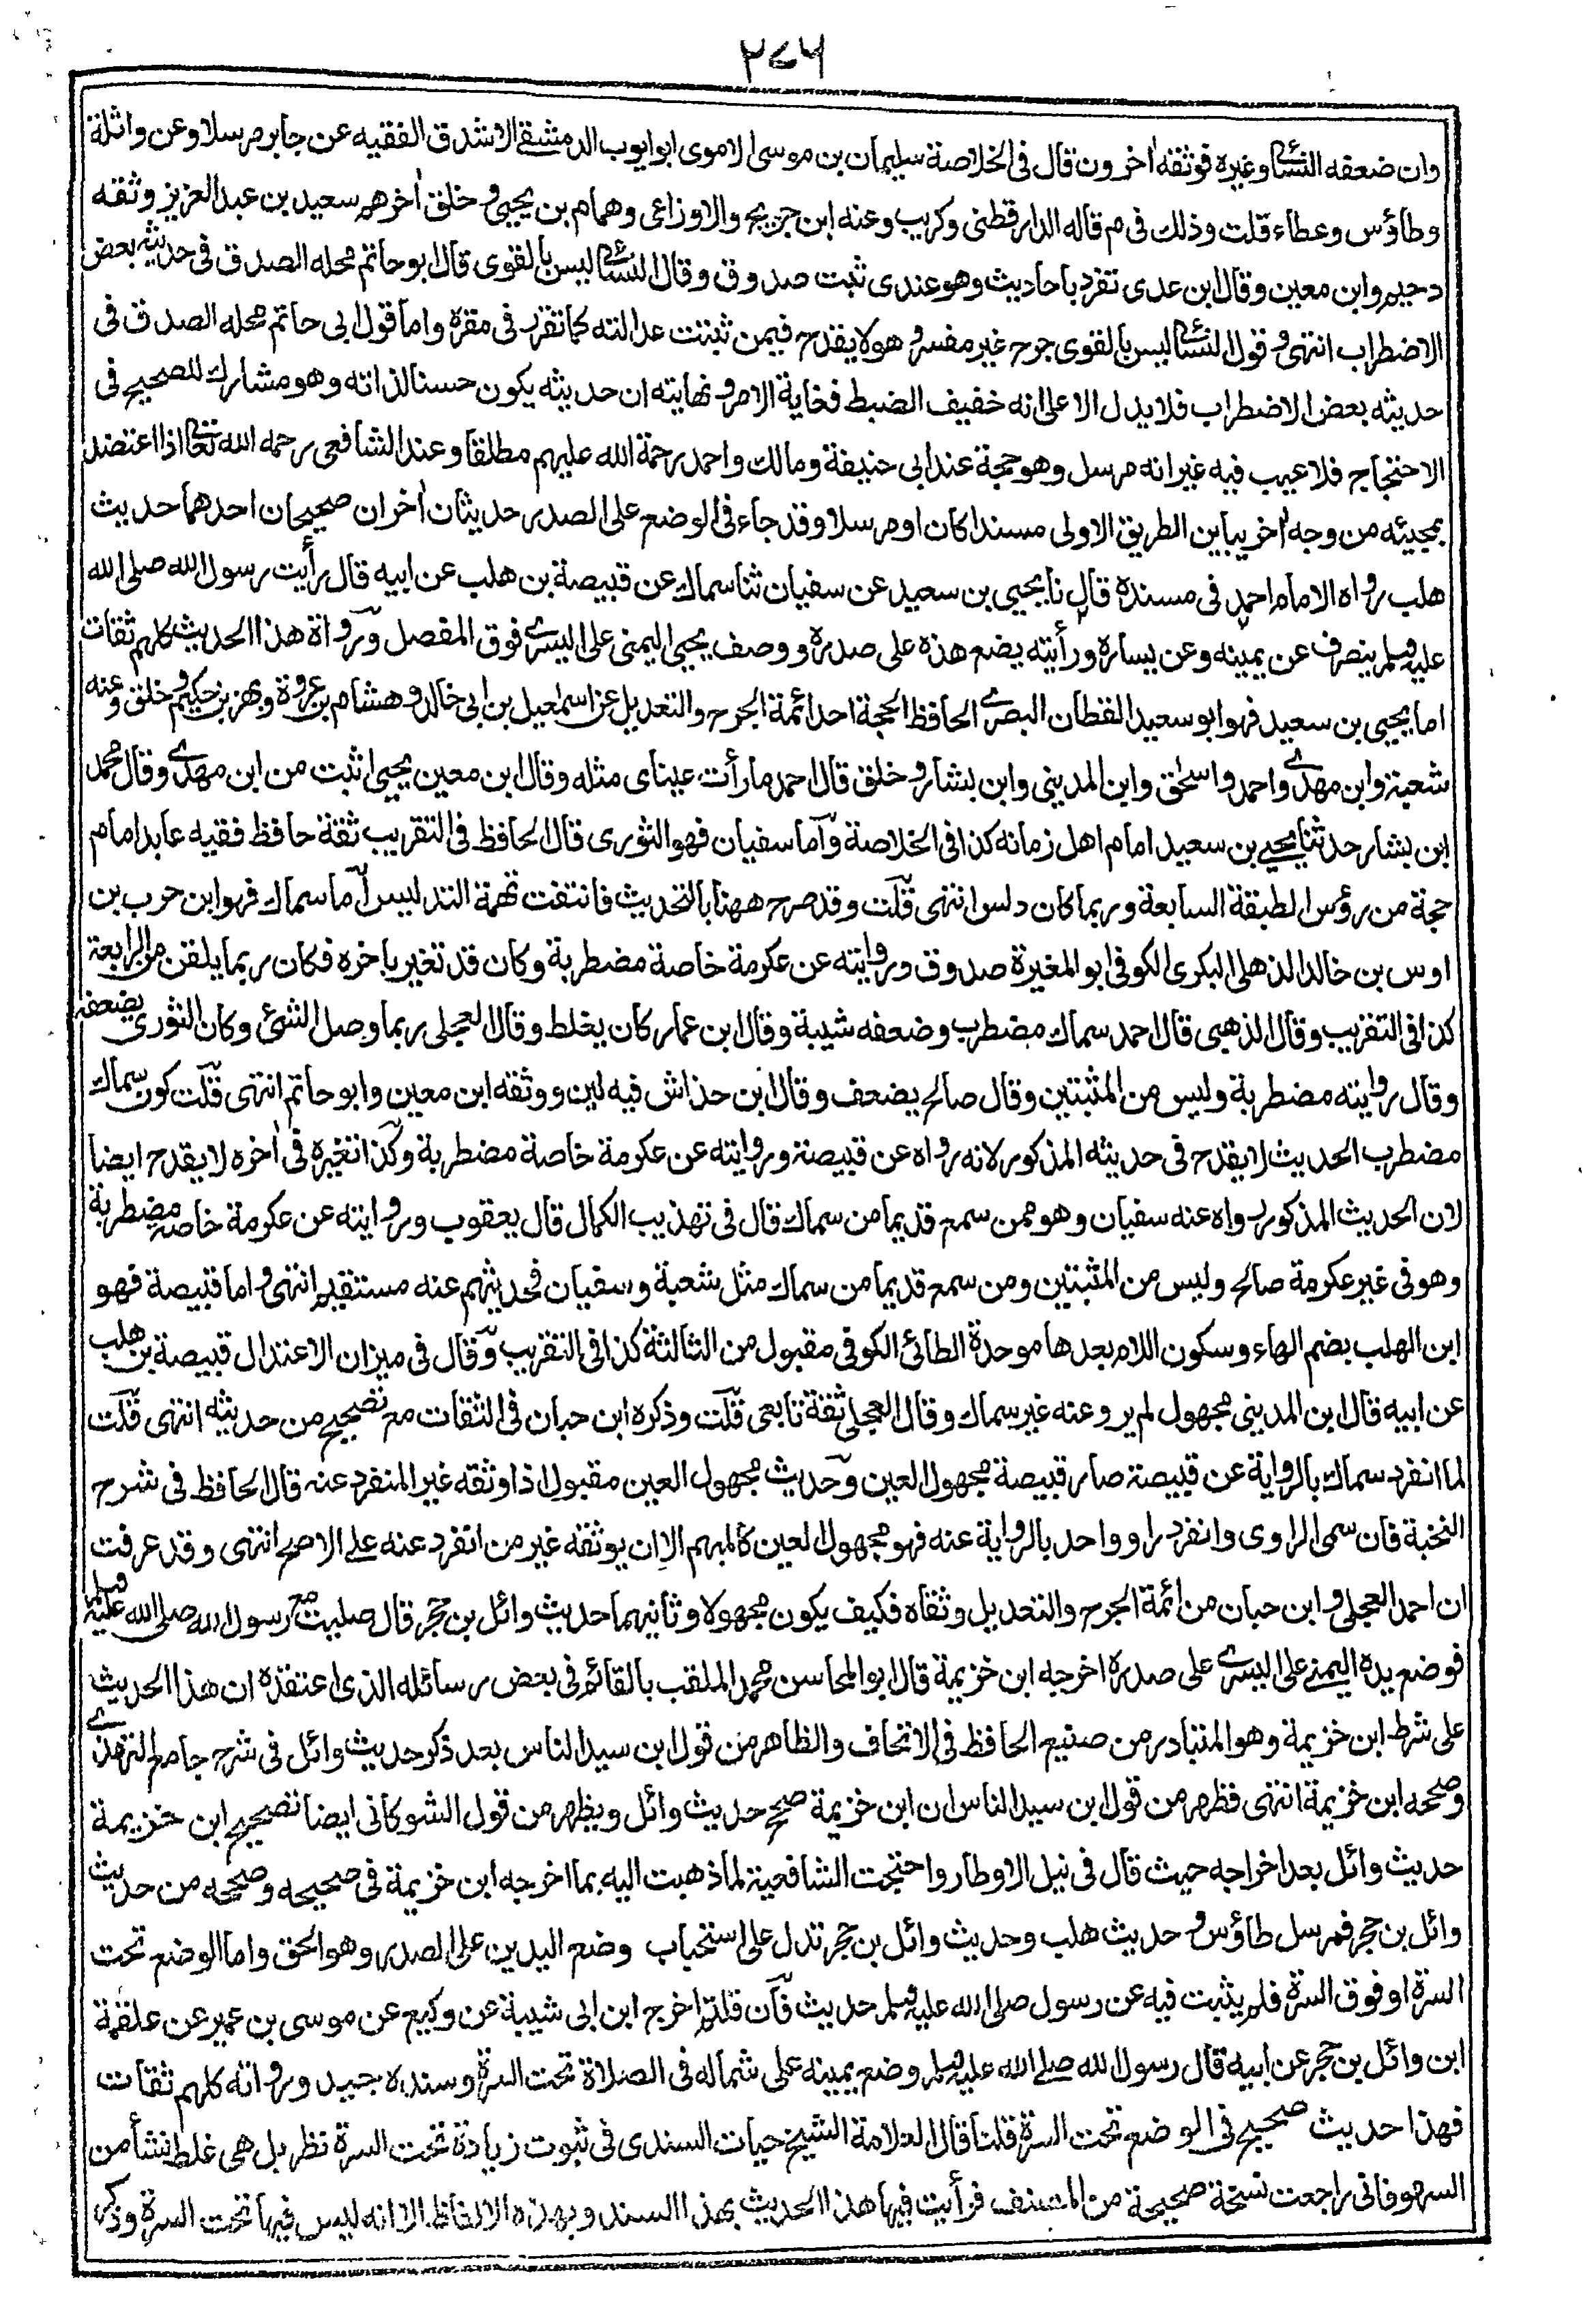 ٢٧٦
وان ضعفه النسائي وغيره فوثقه اٰخرون قال فى الخلاصة سليمان بن موسى الاموى ابو ايوب الدمشقى الاشدق الفقيه عن جابر مرسلا وعن واثلة
وطاؤس وعطاء قلت وذلك فى م قاله الدارقطنى وكريب وعنه ابن جريج والاوزاعى وهمام بن يحيى وخلق اٰخرهم سعيد بن عبد العزيز وثقه
دحيم وابن معين وقال ابن عدى تفرد باحاديث وهو عندى ثبت صدوق وقال النسائي ليس بالقوى قال ابو حاتم محله الصدق فى حديثه بعض
الاضطراب انتهى وقول النسائي ليس بالقوى جرح غير مفسر وهو لا يقدح فيمن ثبتت عدالته كما تقرر فى مقره واما قول ابى حاتم محله الصدق فى
حديثه بعض الاضطراب فلا يدل الا على انه خفيف الضبط فغاية الامر ونهايته ان حديثه يكون حسنا لذاته وهو مشارك للصحيح فى
الاحتجاج فلا عيب فيه غير انه مرسل وهو حجة عند ابى حنيفة ومالك واحمد رحمة الله عليهم مطلقا وعند الشافعى رحمه الله تعالى اذا اعتضد
بمجيئه من وجه اٰخر يباين الطريق الاولى مسندا كان او مرسلا وقد جاء فى الوضع على الصدر حديثان اٰخران صحيحان احدهما حديث
هلب رواه الامام احمد فى مسنده قال نا يحيى بن سعيد عن سفيان ثنا سماك عن قبيصة بن هلب عن ابيه قال رأيت رسول الله صلى الله
عليه وسلم ينصرف عن يمينه وعن يساره ورأيته يضع هذه على صدره ووصف يحيى اليمنى على اليسرى فوق المفصل ورواة هذا الحديث كلهم ثقات
اما يحيى بن سعيد فهو ابو سعيد القطان البصرى الحافظ الحجة احد ائمة الجرح والتعديل عن اسمعيل بن ابى خالد وهشام بن عروة وبهز بن حكيم وخلق وعنه
شعبة وابن مهدى واحمد واسحٰق وابن المدينى وابن بشار وخلق قال احمد ما رأت عيناى مثله وقال ابن معين يحيى اثبت من ابن مهدى وقال محمد
ابن بشار حدثنا يحيى بن سعيد امام اهل زمانه كذا فى الخلاصة وآما سفيان فهو الثورى قال الحافظ فى التقريب ثقة حافظ فقيه عابد امام
حجة من رؤس الطبقة السابعة وربما كان دلس انتهى قلت وقد صرح ههنا بالتحديث فانتفت تهمة التدليس آما سماك فهو ابن حرب بن
اوس بن خالد الذهلى البكرى الكوفى ابو المغيرة صدوق وروايته عن عكرمة خاصة مضطربة وكان قد تغير باخره فكان ربما يلقن من الرابعة
كذا فى التقريب وقال الذهبى قال احمد سماك مضطرب وضعفه شيبة وقال ابن عمار كان يغلط وقال العجلى ربما وصل الشئ وكان الثورى يضعفه
وقال روايته مضطربة وليس من المثبتين وقال صالح يضعف وقال ابن حذاش فيه لين ووثقه ابن معين وابو حاتم انتهى قلت كون سماك
مضطرب الحديث لا يقدح فى حديثه المذكور لانه رواه عن قبيصة وروايته عن عكرمة خاصة مضطربة وكذا تغيره فى اٰخره لا يقدح ايضا
لان الحديث المذكور رواه عنه سفيان وهو ممن سمع قديما من سماك قال فى تهذيب الكمال قال يعقوب وروايته عن عكرمة خاصه مضطربة
وهو فى غير عكرمة صالح وليس من المثبتين ومن سمع قديما من سماك مثل شعبة وسفيان فحديثهم عنه مستقيم انتهى واما قبيصة فهو
ابن الهلب بضم الهاء وسكون اللام بعدها موحدة الطائى الكوفى مقبول من الثالثة كذا فى التقريب وقال فى ميزان الاعتدال قبيصة بن هلب
عن ابيه قال ابن المدينى مجهول لم يرو عنه غير سماك وقال العجلى ثقة تابعى قلت وذكره ابن حبان فى الثقات مع تصحيح من حديثه انتهى قلت
لما انفرد سماك بالرواية عن قبيصة صار قبيصة مجهول العين وحديث مجهول العين مقبول اذا وثقه غير المنفرد عنه قال الحافظ فى شرح
النخبة فان سمى الراوى وانفرد راو واحد بالرواية عنه فهو مجهول العين كالمبهم الا ان يوثقه غير من انفرد عنه على الاصح انتهى وقد عرفت
ان احمد العجلى وابن حبان من ائمة الجرح والتعديل وثقاه فكيف يكون مجهولا وثانيهما حديث وائل بن حجر قال صليت مع رسول الله صلى الله عليه وسلم
فوضع يده اليمنى على اليسرى على صدره اخرجه ابن خزيمة قال ابو المحاسن محمد الملقب بالقائم فى بعض رسائله الذى اعتقده ان هذا الحديث
على شرط ابن خزيمة وهو المتبادر من صنيع الحافظ فى الاتحاف والظاهر من قول ابن سيد الناس بعد ذكر حديث وائل فى شرح جامع الترمذى
وصححه ابن خزيمة انتهى فظهر من قول ابن سيد الناس ان ابن خزيمة صحح حديث وائل ويظهر من قول الشوكانى ايضا تصحيح ابن خزيمة
حديث وائل بعد اخراجه حيث قال فى نيل الاوطار واحتجت الشافعية لما ذهبت اليه بما اخرجه ابن خزيمة فى صحيحه وصححه من حديث
وائل بن حجر فمرسل طاؤس و حديث هلب وحديث وائل بن حجر تدل على استحباب وضع اليدين على الصدر وهو الحق واما الوضع تحت
السرة او فوق السرة فلم يثبت فيه عن رسول صلى الله عليه وسلم حديث فآن قلت اخرج ابن ابى شيبة عن وكيع عن موسى بن عمير عن علقمة
ابن وائل بن حجر عن ابيه قال رسول الله صلى الله عليه وسلم وضع يمينه على شماله فى الصلاة تحت السرة وسنده جيد ورواته كلهم ثقات
فهذا حديث صحيح فى الوضع تحت السرة قلت قال العلامة الشيخ حيات السندى فى ثبوت زيادة تحت السرة نظر بل هى غلط نشأ من
السهو فانى راجعت نسخة صحيحة من المصنف فرأيت فيها هذا الحديث بهذا السند وبهذه الالفاظ الا انه ليس فيها تحت السرة وذكر